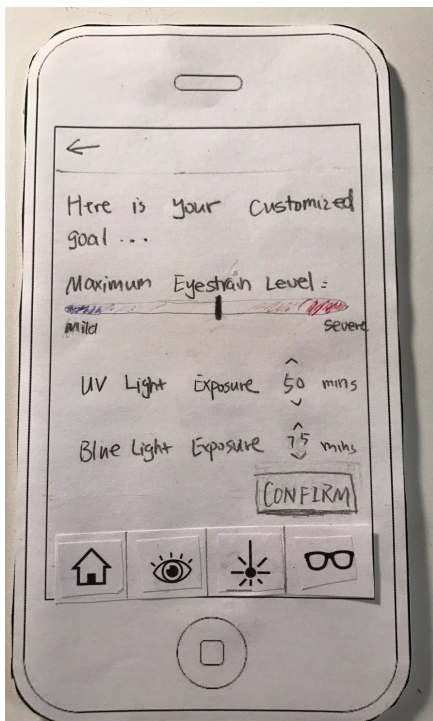 Here is your customized
goal ...
Maximum Eyestrain Level :
Mild Severe
UV Light Exposure 50 mins
Blue Light Exposure 75 mins
CONFIRM